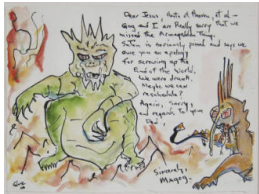 Dear Jesus, Hosts of Heaven, et al –
Gog and I are Really sorry that we
missed the Armageddon Thing.
Satan is seriously pissed and says we
owe you an apology
for screwing up the
End of the World.
We were drunk.
Maybe we can
reschedule?
Again, Sorry,
and regards to your
Dad.
Sincerely,
Magog.